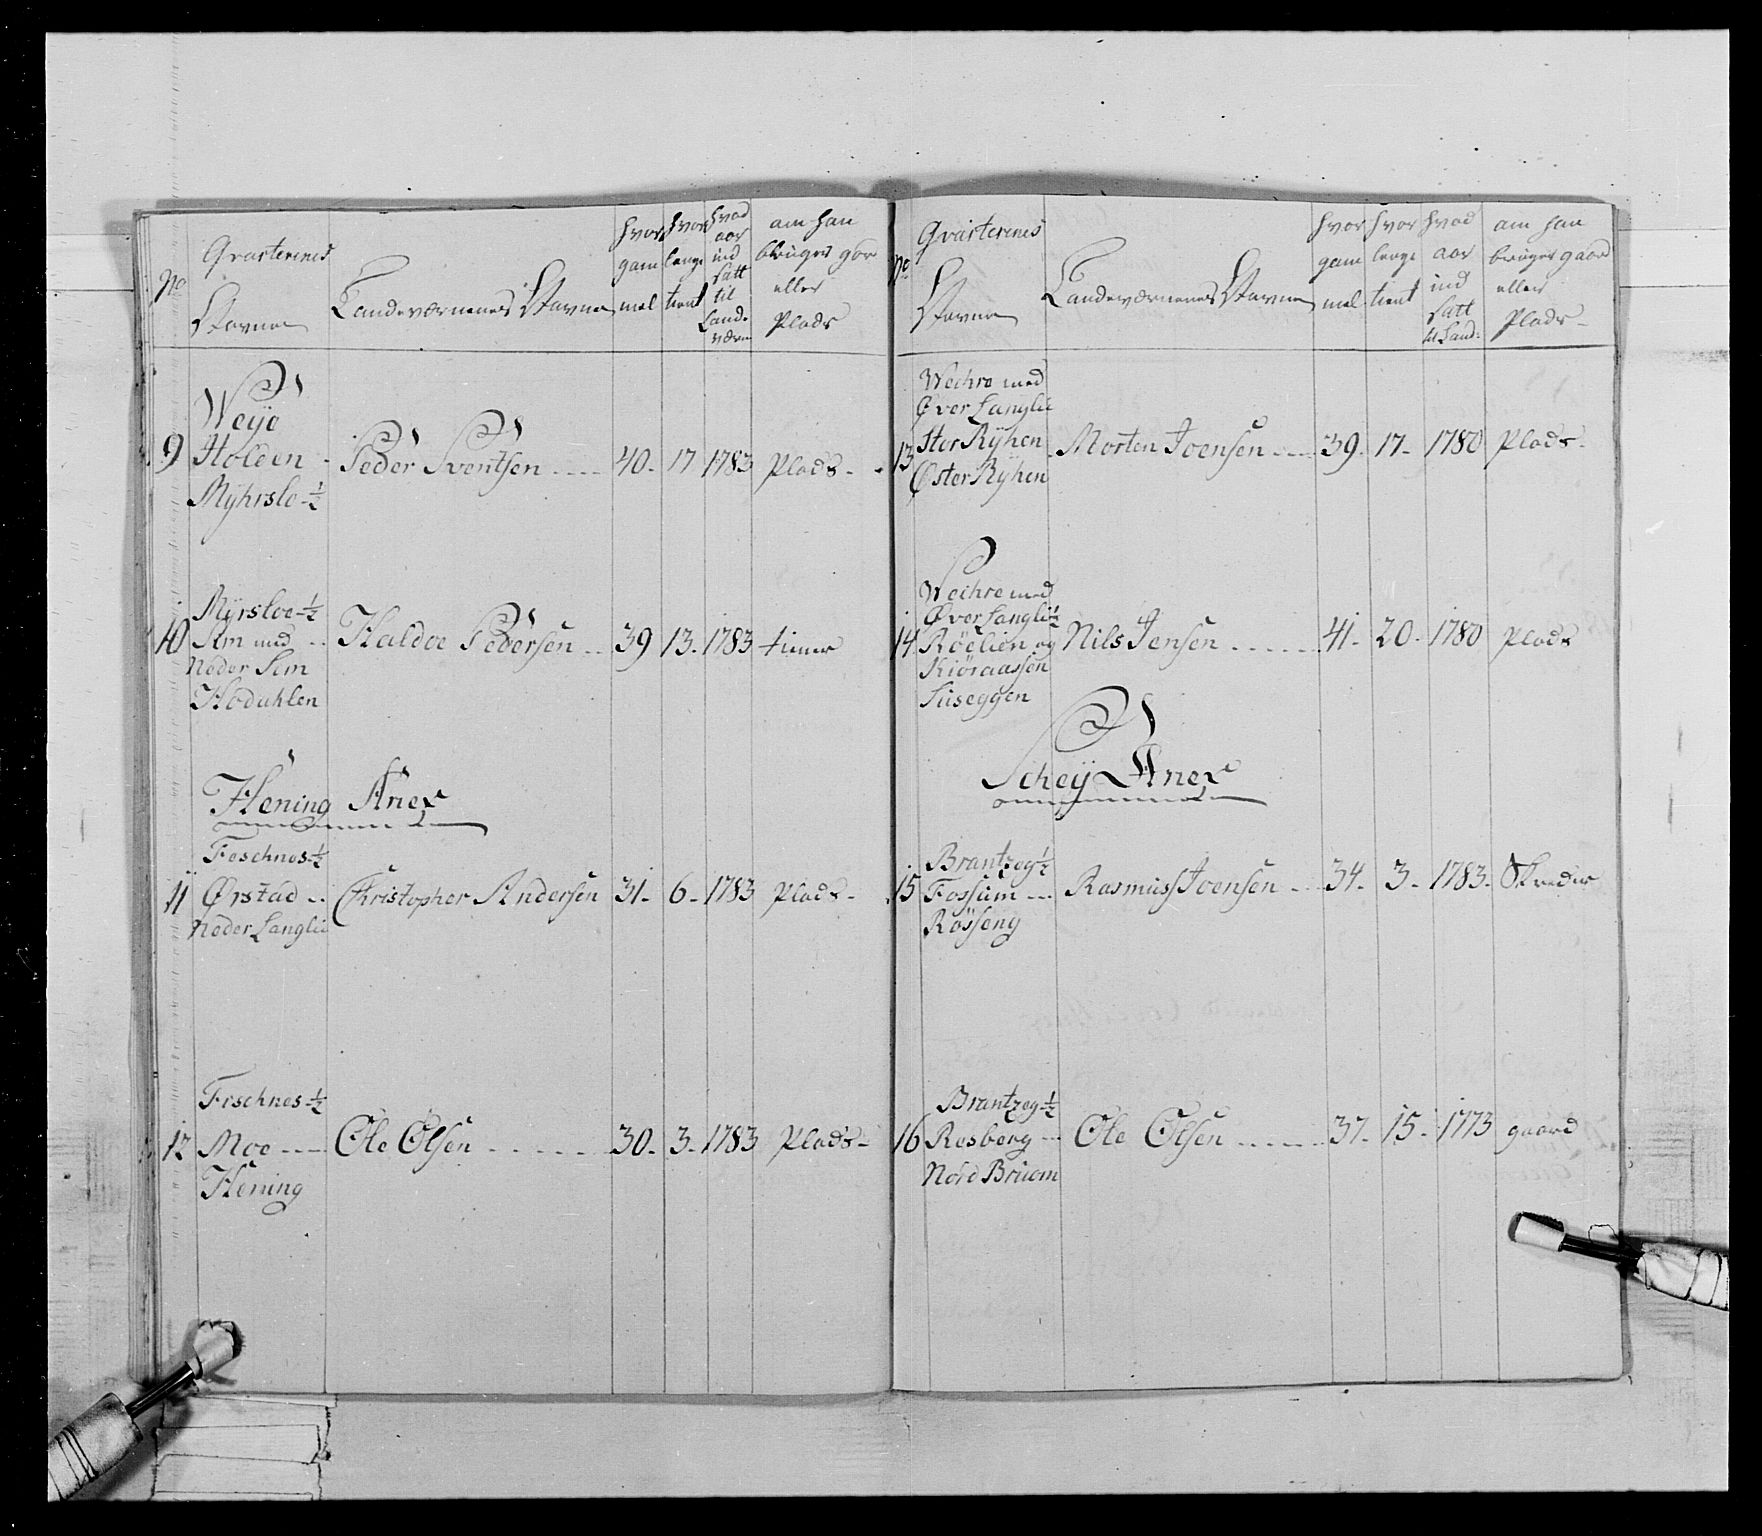 No
Qvarterenes
Navne
Landeværnenes Navne
hvor
gam
mel
hvor
lenge
tient
hvad
aar
ind
satt
til
Lande
værn
om han
bruger gor
eller
Plads
9
Weye
Holden
Myhrslo ½
Peder Sventsen 40 17 1783 Plads
10
Myrsloe ½
Sem med
Neder Sem
Hoduhlen
Haldoe Pedersen 39 13 1783 tiener
Hening Anex
11
Foschnes ½
Ørstad
Neder Langlie
Christopher Andersen 31 6 1783 Plads
12
Foschnes ½
Moe
Hening
Ole Olsen 30 3 1783 Plads
No
Qvarterenes
Navne
Landeværnenes Navne
hvor
gam
mel
hvor
lenge
tient
hvad
aar
ind
satt
til Land:
om han
bruger gaard
eller
Plads
13
Wechre med
Øver Langlie
Stor Ryhen
Øster Ryhen
Morten Joensen 39 17 1780 Plads
14
Wechre med
Øver Langli ½
Röelien og
Kiöraassen
Suseggen
Nils Jensen 41 20 1780 Plads
Schey Anex
15
Brantzeg ½
Fossum
Rösseng
Rasmus Joensen 34 3 1783 Skreder
16
Brantzeg ½
Rosberg
Nord Bruem
Ole Olsen 37 15 1773 gaard